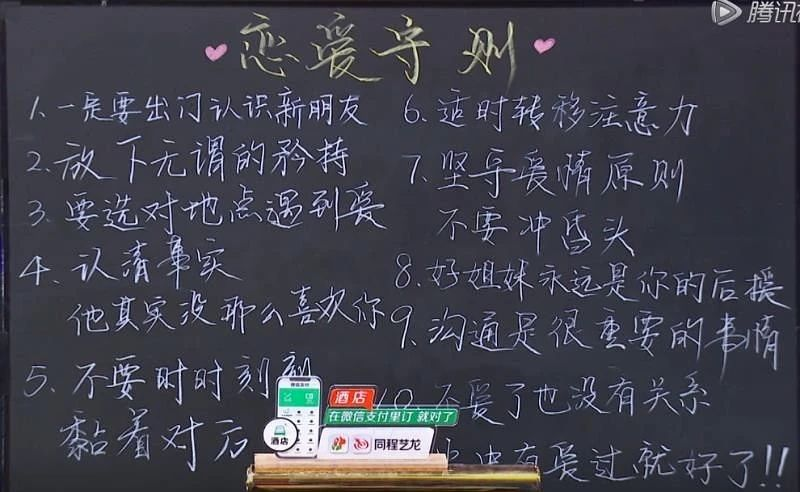 腾讯
恋爱守则
1、一定要出门认识新朋友
2、放下无谓的矜持
3、要选对地点遇到爱
4、认清事实
他其实没那么喜欢你
5、不要时时刻刻
黏着对
6、适时转移注意力
7、坚守爱情原则
不要冲昏头
8、好姐妹永远是你的后援
9、沟通是很重要的事情
0、不爱了也没有关系
有爱过就好了!!
酒店
在微信支付里订 就对了
酒店
同程艺龙